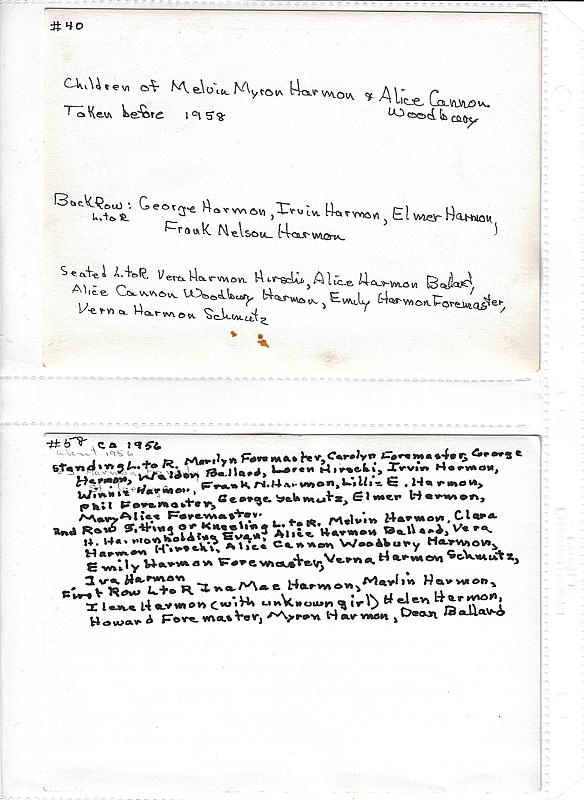 #40
Children of Melvin Myron Harmon & Alice Cannon
Woodbury
Taken before 1958
Back Row: George Harmon, Irvin Harmon, Elmer Harmon,
L. to R
Frank Nelson Harmon
Seated L. to R. Vera Harmon Hirschi, Alice Harmon Ballard,
Alice Cannon Woodbury Harmon, Emily Harmon Foremaster,
Verna Harmon Schmutz
#58 ca 1956
about 1956
Standing L. to R. Marilyn Foremaster, Carolyn Foremaster, George
Harmon, Waldon Ballard, Loren Hirschi, Irvin Harmon,
Winnie Harmon, Frank N. Harmon, Lillie E. Harmon,
Phil Foremaster, George Schmutz, Elmer Harmon,
Mary Alice Foremaster.
2nd Row Sitting or Kneeling L. to R. Melvin Harmon, Clara
H. Harmon holding Evan, Alice Harmon Ballard, Vera
Harmon Hirschi, Alice Cannon Woodbury Harmon,
Emily Harmon Foremaster, Verna Harmon Schmutz,
Iva Harmon
First Row L to R Ina Mae Harmon, Marlin Harmon,
Ilene Harmon (with unknown girl) Helen Harmon,
Howard Foremaster, Myron Harmon, Dean Ballard